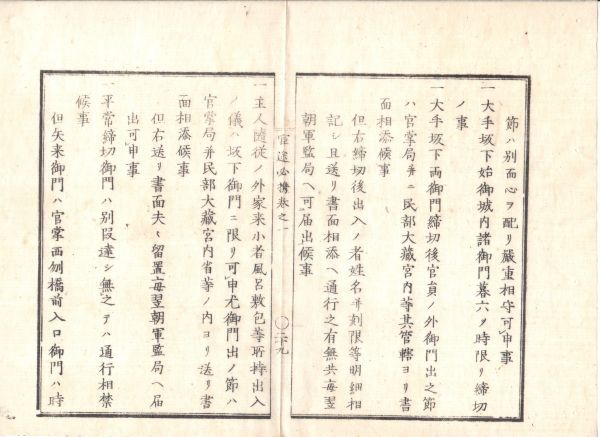 節ハ別而心ヲ配リ嚴重相守可申事
一大手坂下始御城内諸御門暮六ツ時限リ締切
ノ事
一大手坂下両御門締切後官員ノ外御門出之節
ハ官掌局并ニ民部大藏宮内等其管轄ヨリ書
面相添候事
但右締切後出入ノ者姓名并刻限等明細相
記シ且送リ書面相添ヘ通行之有無共毎翌
朝軍監局ヘ可届出候事
官途必携巻之一
〇二十九
一主人隨従ノ外家来小者風呂敷包等所持出入
ノ儀ハ坂下御門ニ限リ可申尤御門出ノ節ハ
官掌局并民部大藏宮内省等ノ内ヨリ送リ書
面相添候事
但右送リ書面夫々留置毎翌朝軍監局ヘ届
出可申事
一平常締切御門ハ別段達シ無之テハ通行相禁
候事
但矢来御門ハ官掌西刎橋前入口御門ハ時